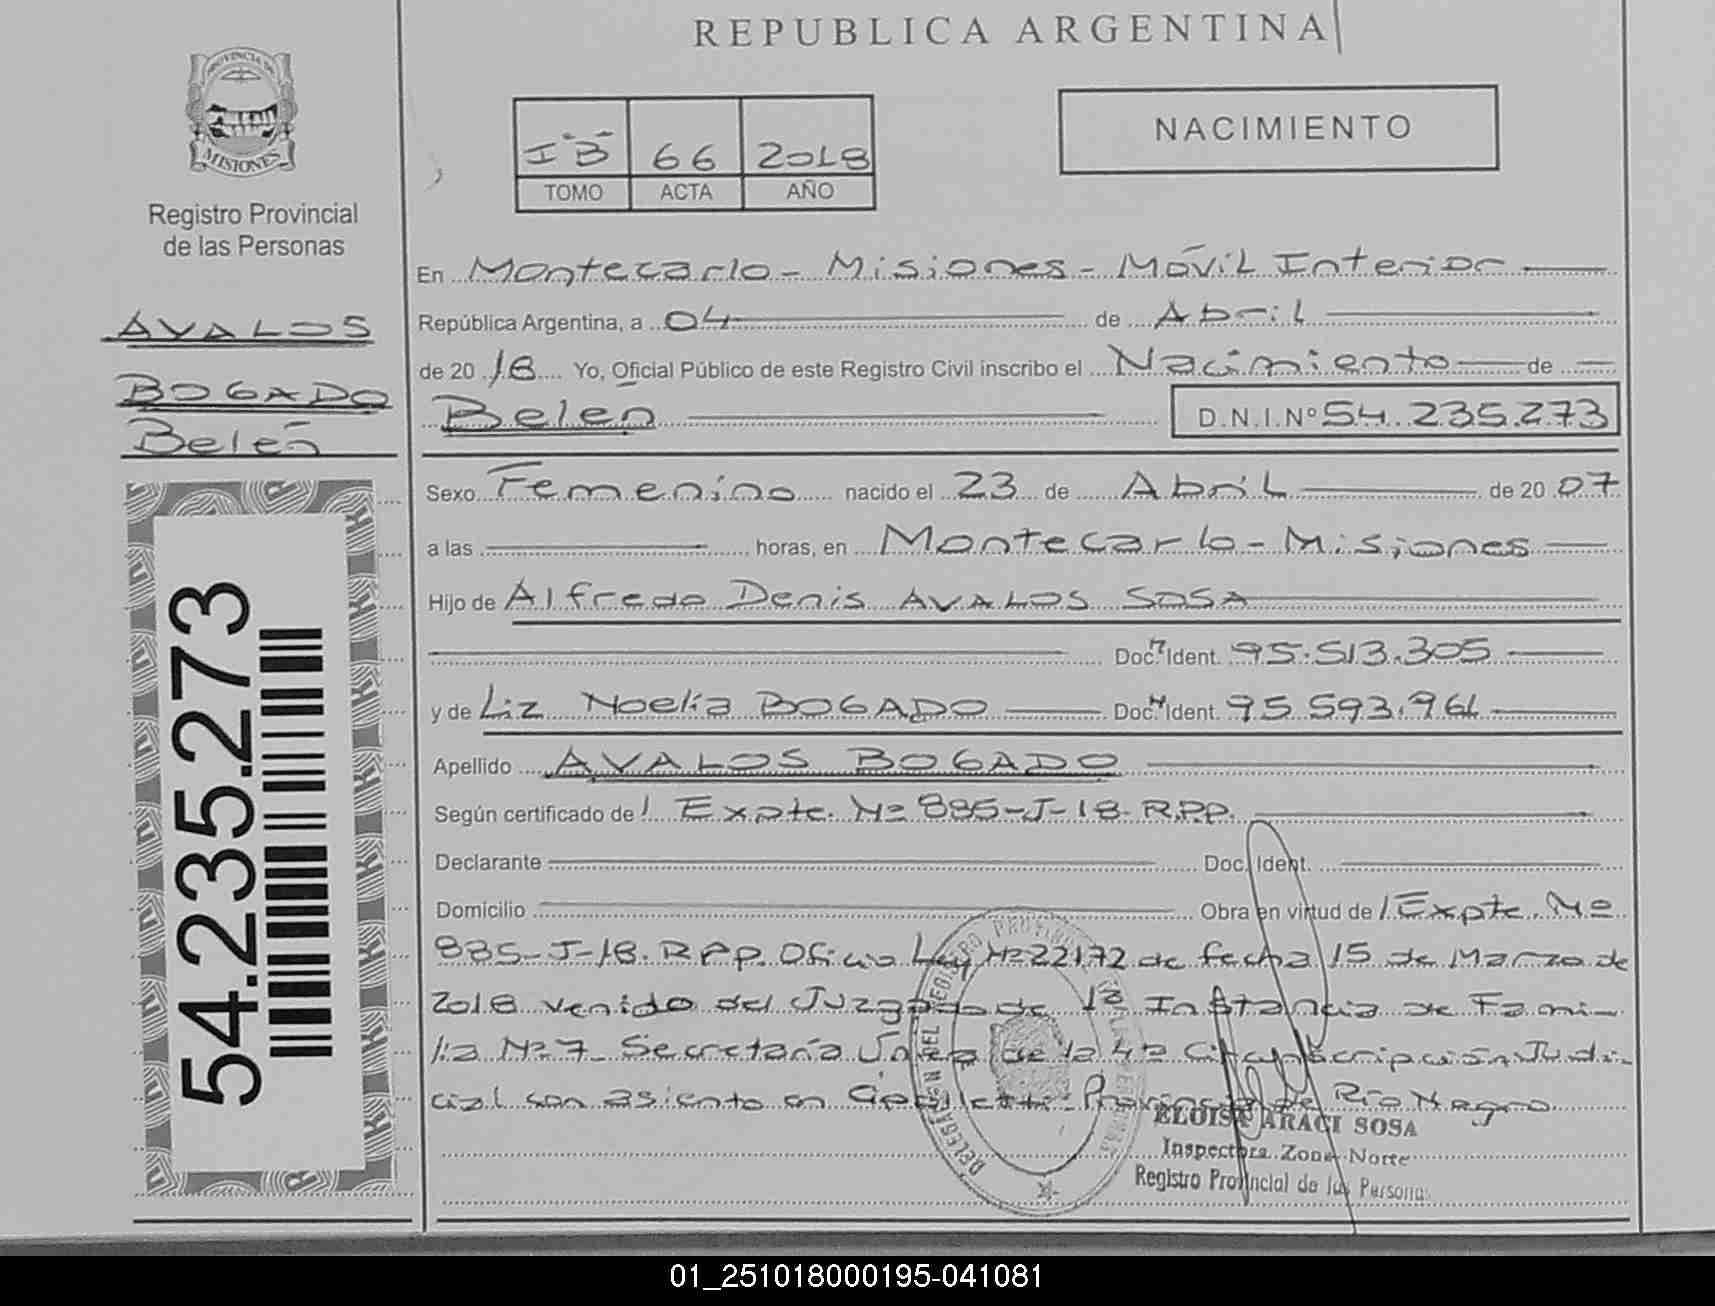 REPUBLICA ARGENTINA
PROVINCIA DE
MISIONES
Registro Provincial
de las Personas
AVALOS
BOGADO
Belén
54.235.273
I B 66 2018
TOMO ACTA AÑO
NACIMIENTO
En Montecarlo - Misiones - Móvil Interior
República Argentina, a 04 de Abril
de 2018 Yo, Oficial Público de este Registro Civil inscribo el Nacimiento de
Belén D.N.I.Nº 54.235.273
Sexo Femenino nacido el 23 de Abril de 2007
a las horas, en Montecarlo - Misiones
Hijo de Alfredo Denis AVALOS SOSA
Doc. Ident. 95.513.305
y de Liz Noelia BOGADO Doc. Ident. 95.593.964
Apellido AVALOS BOGADO
Según certificado de / Expte. Nº 885-J-18- R.P.P.
Declarante Doc. Ident.
Domicilio Obra en virtud de / Expte. Nº
885-J-18. R.P.P. Oficio Ley Nº 22172 de fecha 15 de Marzo de
2018 venido del Juzgado de 1ª Instancia de Fami-
lia Nº 7- Secretaría Única de la 4ª Circunscripción Judi-
cial con asiento en Cipolletti- Provincia de Río Negro
ELOISA ARACI SOSA
Inspectora Zona Norte
Registro Provincial de las Personas
01_251018000195-041081